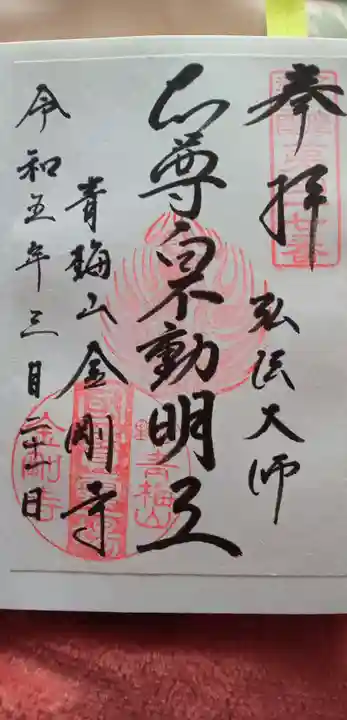 奉拝
弘法大師
本尊白不動明王
青梅山金剛寺
令和五年三月二十一日
青梅山
金剛寺